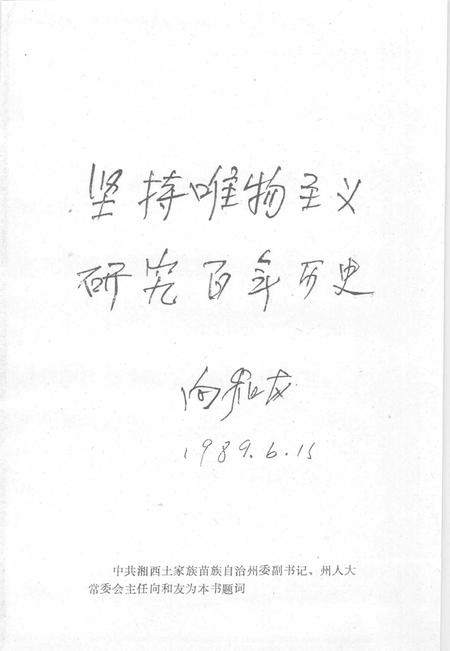 坚持唯物主义
研究百年历史
向和友
1989.6.15
中共湘西土家族苗族自治州委副书记、州人大
常委会主任向和友为本书题词